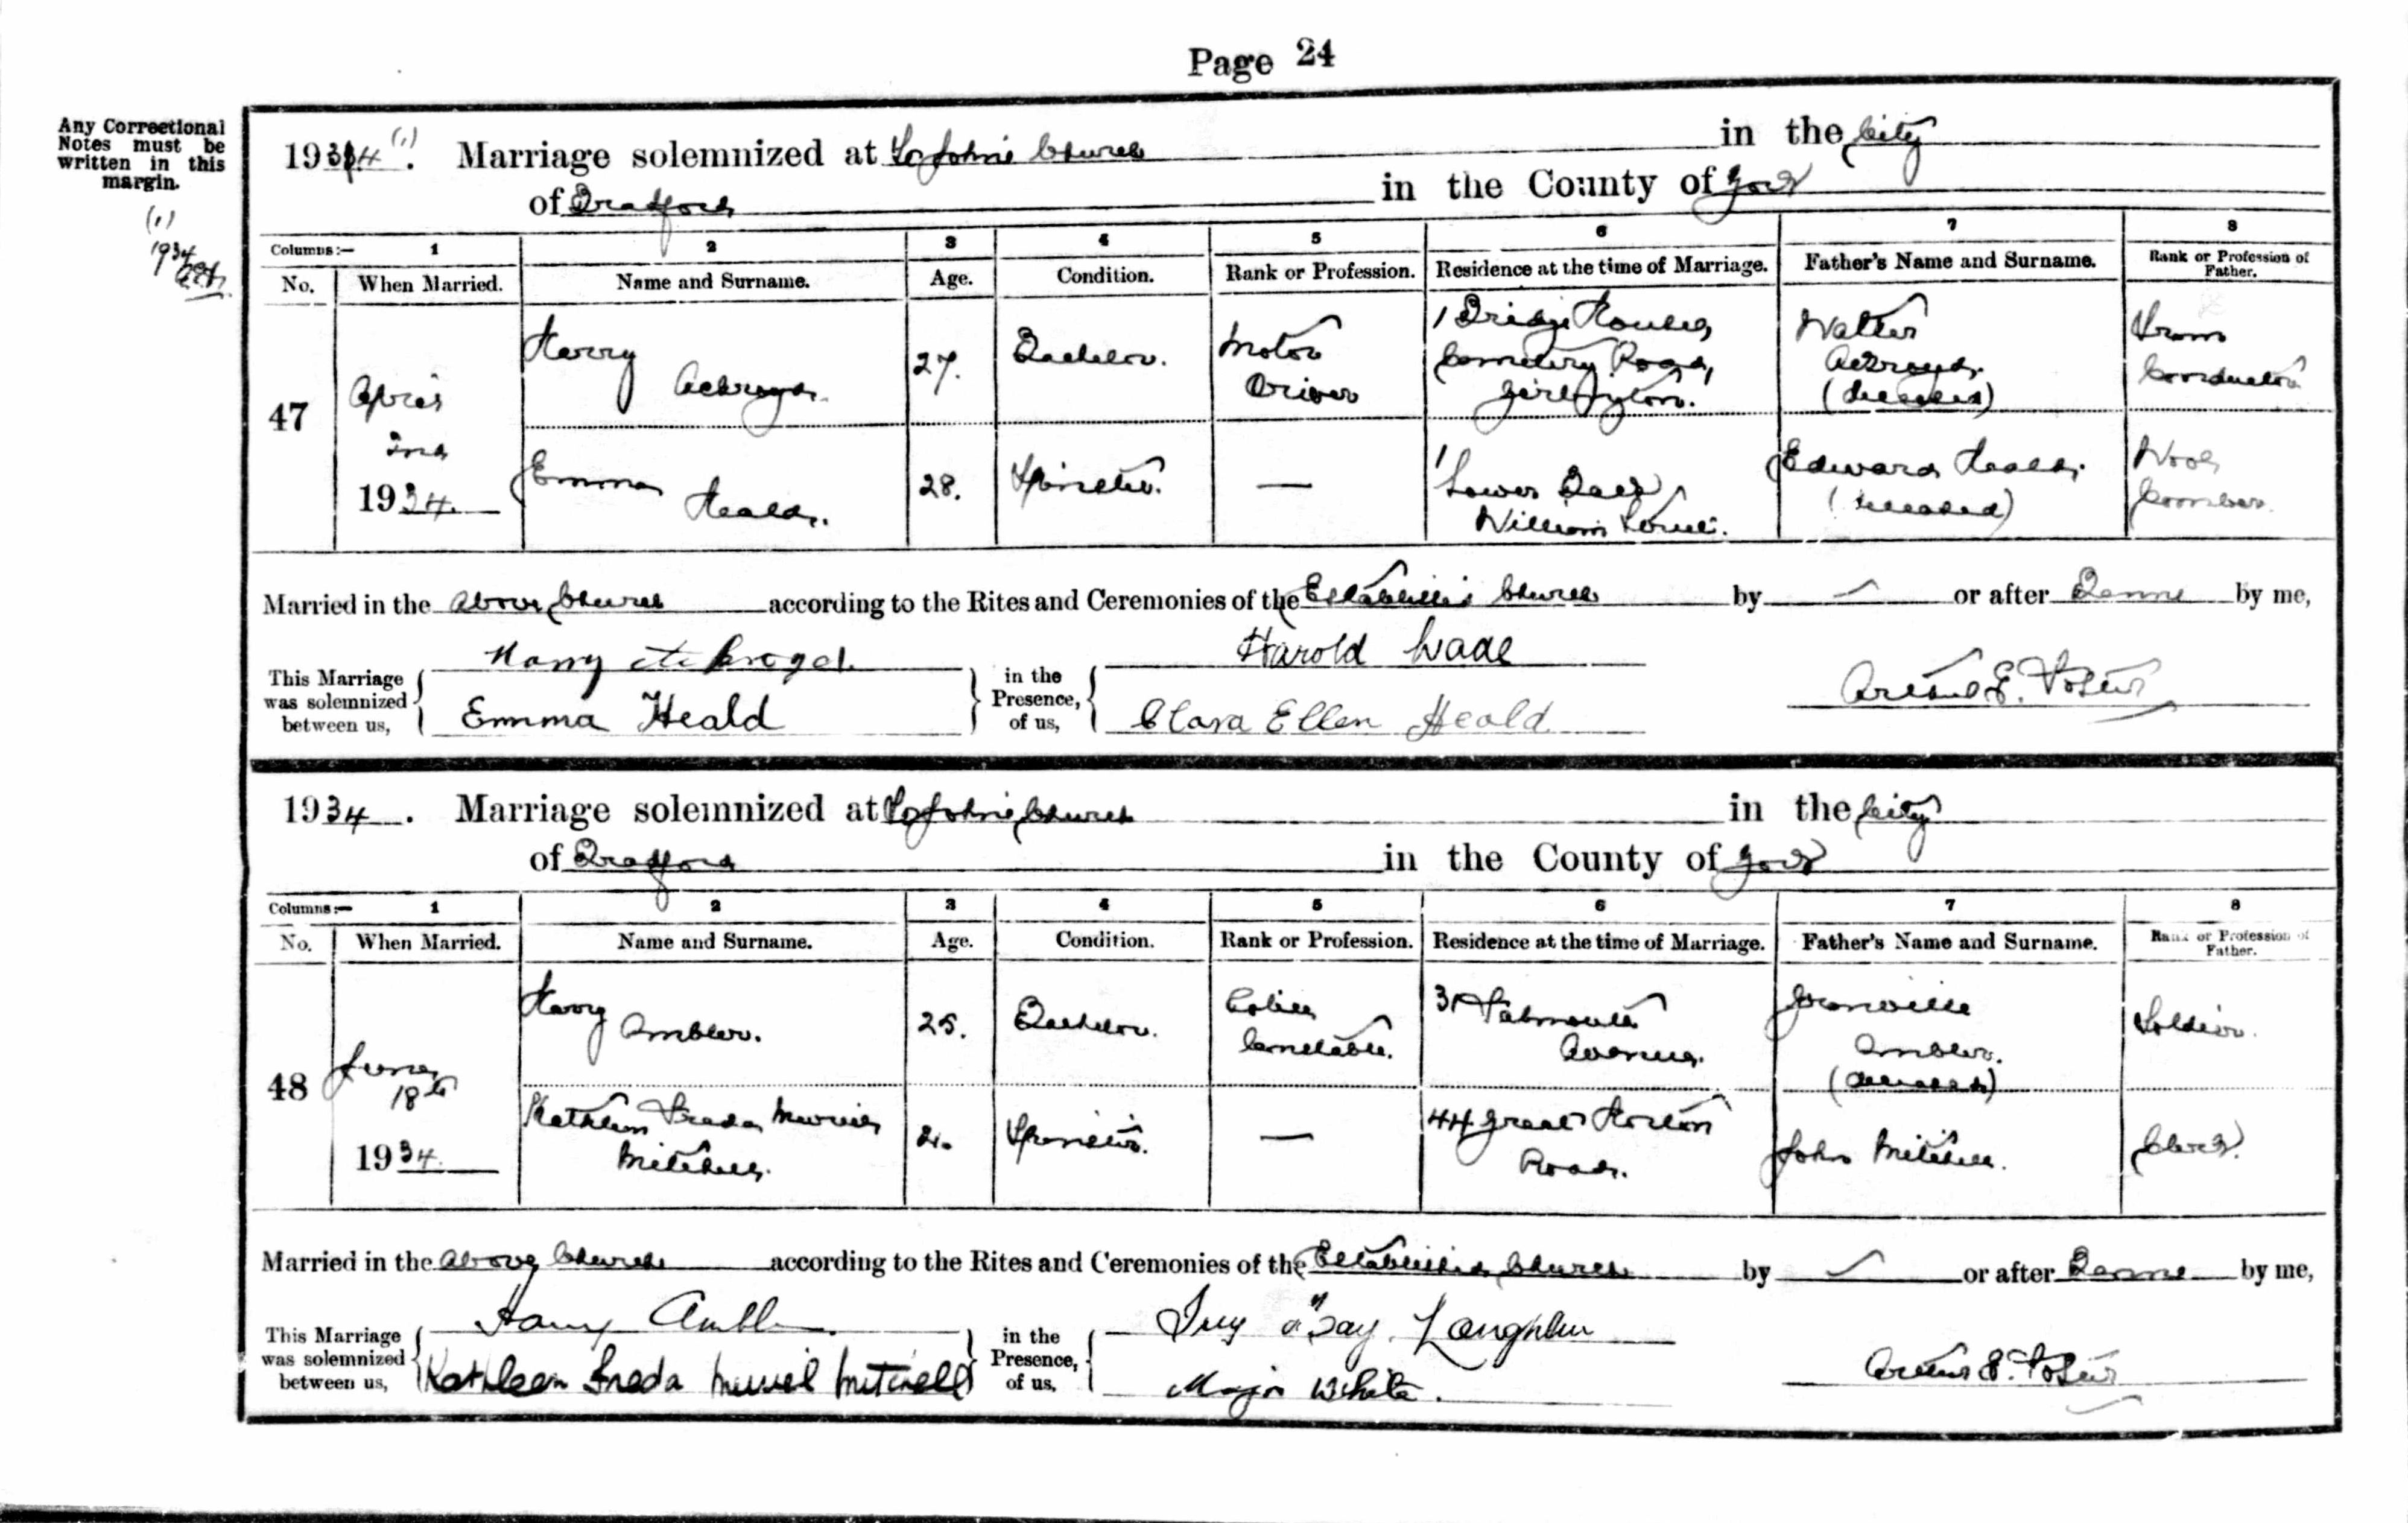 Page 24
Any Correctional
Notes must be
written in this
margin.
(1)
1934
1934 (1). Marriage solemnized at St John's Church in the City
of Bradford in the County of York
Columns:— 1 2 3 4 5 6 7 8
No. When Married. Name and Surname. Age. Condition. Rank or Profession. Residence at the time of Marriage. Father's Name and Surname. Rank or Profession of Father.
47
April
2nd
1934
Harry Ackroyd. 27. Bachelor. Motor Driver 1 Bridge Houses, Cemetery Road, Girlington. Walter Ackroyd. (deceased) Tram Conductor
Emma Heald. 28. Spinster. — William Edward Heald. (deceased) Wool Comber.
Married in the above Church according to the Rites and Ceremonies of the Established Church by — or after Banns by me,
This Marriage was solemnized between us, Harry Ackroyd. Emma Heald in the Presence, of us, Harold Wade Clara Ellen Heald Arthur E.
1934. Marriage solemnized at St John's Church in the City
of Bradford in the County of York
Columns:— 1 2 3 4 5 6 7 8
No. When Married. Name and Surname. Age. Condition. Rank or Profession. Residence at the time of Marriage. Father's Name and Surname. Rank or Profession of Father.
48
June
18th
1934.
Harry Ambler. 25. Bachelor. Police Constable. 31 Falmouth Avenue. Granville Ambler. (deceased) Soldier.
Kathleen Freda Muriel Mitchell. 21. Spinster. — 44 Great Horton Road. John Mitchell. Clerk.
Married in the above Church according to the Rites and Ceremonies of the Established Church by — or after Banns by me,
This Marriage was solemnized between us, Harry Ambler. Kathleen Freda Muriel Mitchell in the Presence, of us, Laughlin Major White. Arthur E.